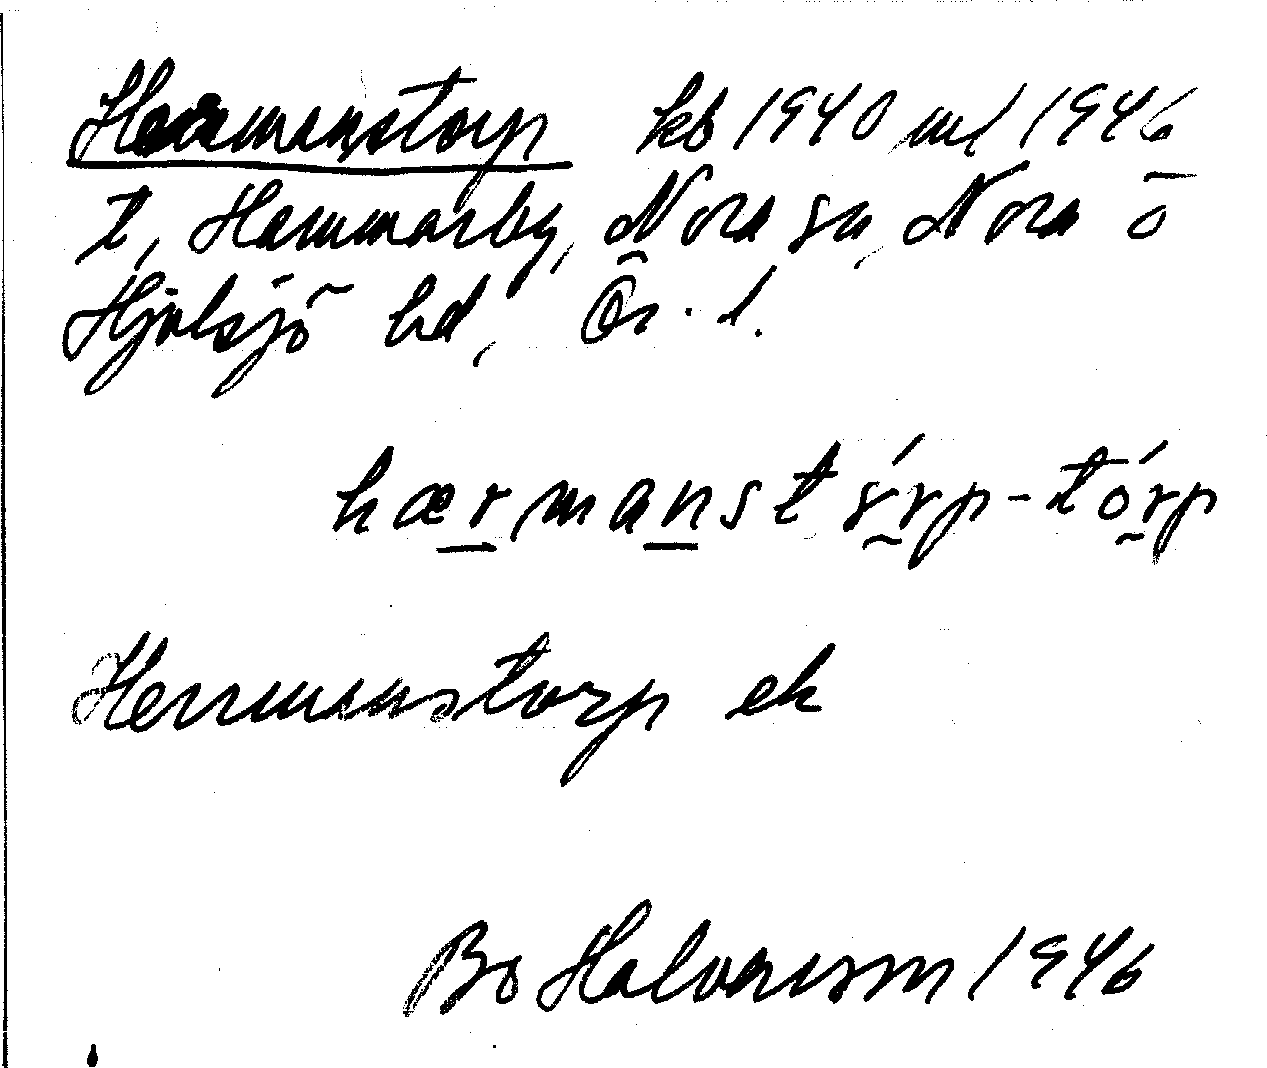 Hermanstorp kb 1940 ml 1946
t, Hammarby, Nora sn, Nora o
Hjulsjö bd, Ör. l.
hærmanstórp - tórp
Herrmanstorp ek
Bo Halvarsson 1946